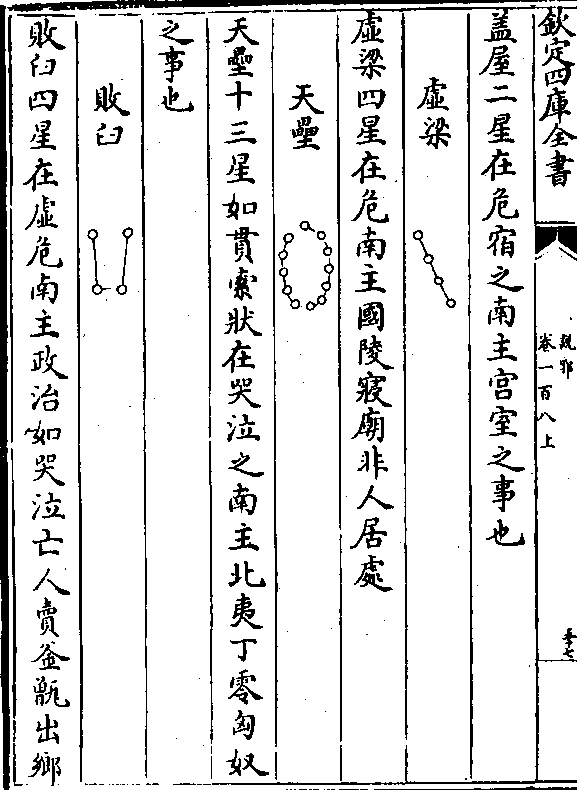 欽定四庫全書
説郛
卷一百八上
盖屋二星在危宿之南主宫室之事也
虛梁
虛梁四星在危南主國陵寢廟非人居處
天壘
天壘十三星如貫索狀在哭泣之南主北夷丁零匈奴
之事也
敗臼
敗臼四星在虛危南主政治如哭泣亡人賣釜甑出鄉